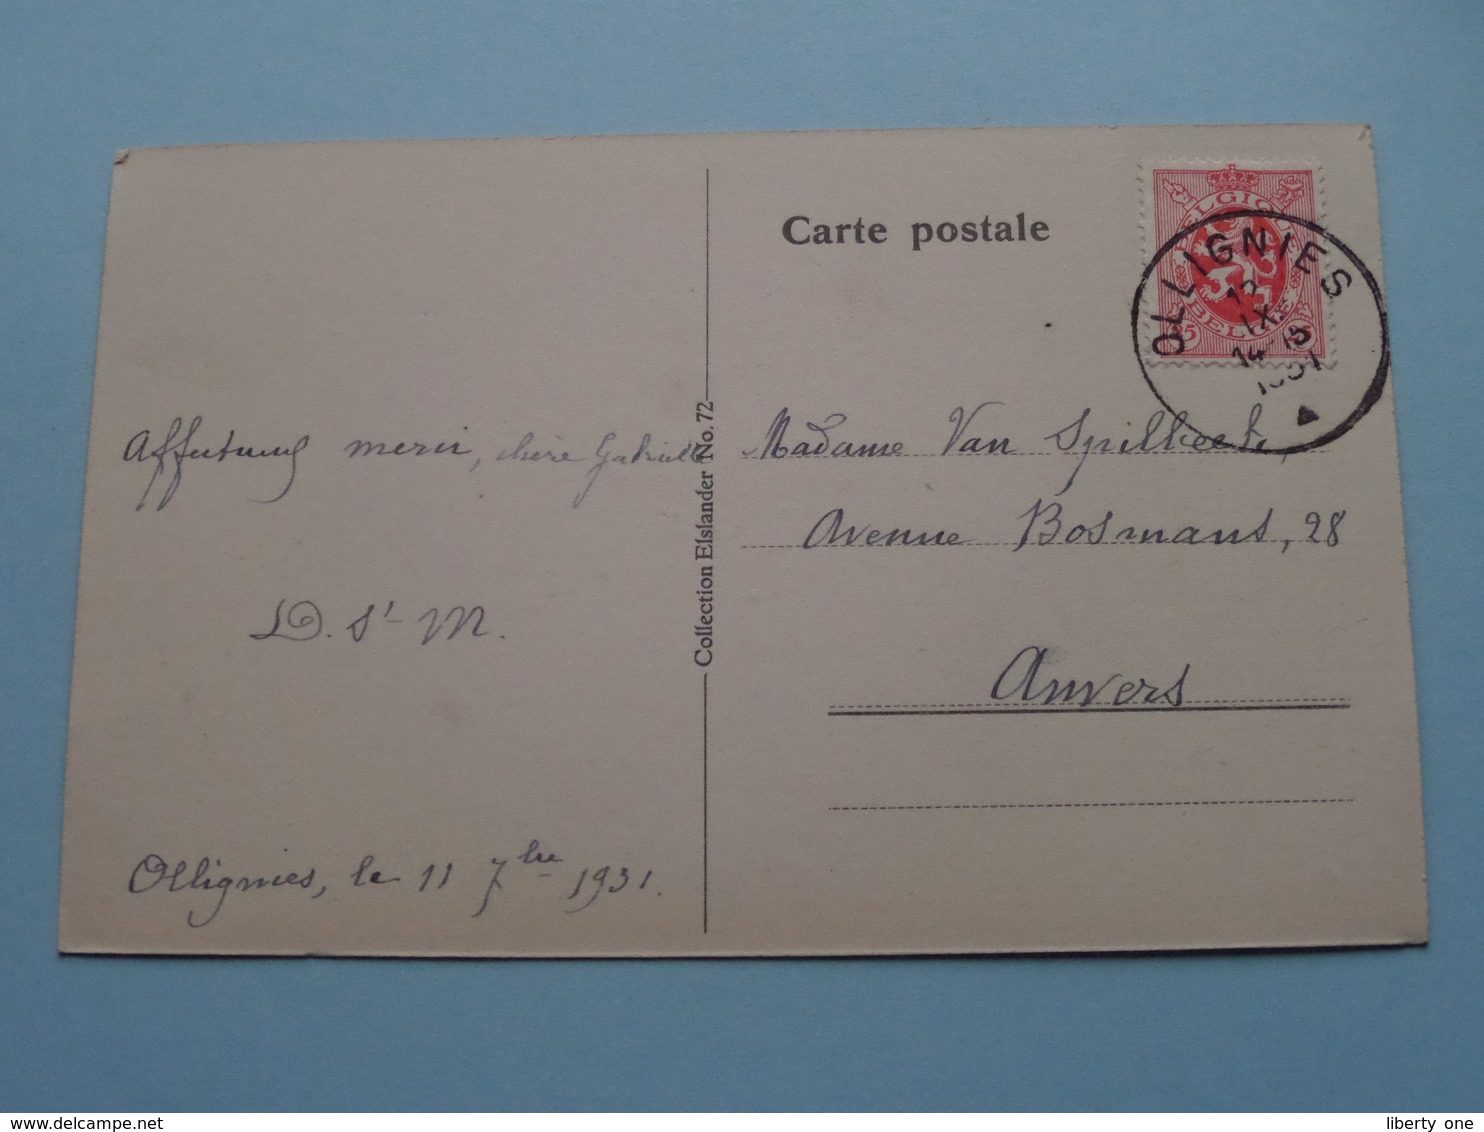 Carte postale
BELGIQUE
BELGIË
OLLIGNIES
12
IX
14-15
1931
Affectueux merci, chère Gabrielle
D. St M.
Ollignies, le 11 7bre 1931.
Collection Elslander No. 72
Madame Van Spilbeeck,
Avenue Bosmans, 28
Anvers
delcampe.net
liberty one